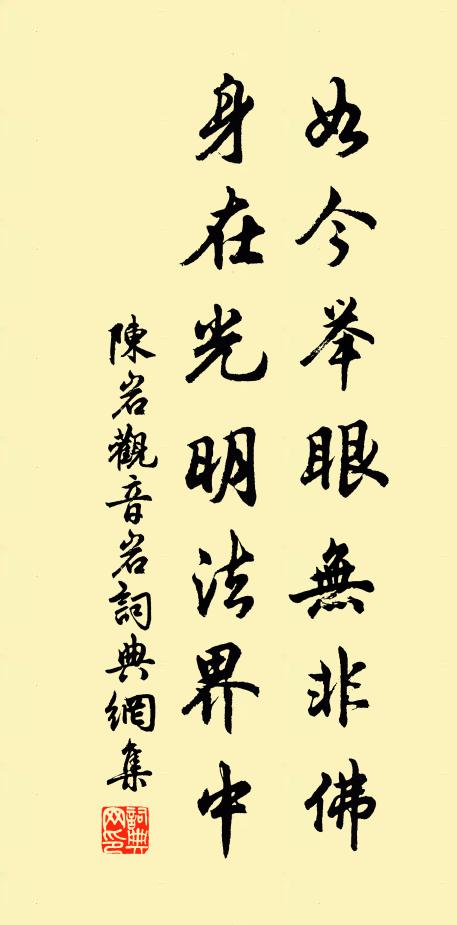 如今举眼無非佛
身在光明法界中
陳岩觀音岩詞典網集
詞典
网印